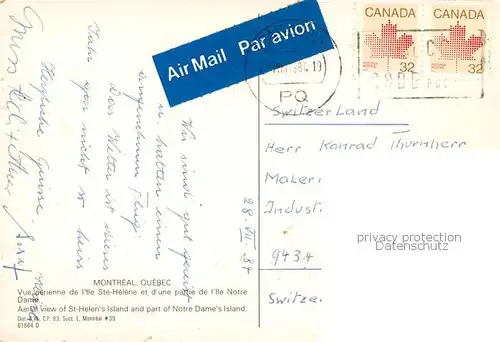 Air Mail Par avion
CANADA
32
CANADA
32
PQ
Switzerland
Herr Konrad Thurnherr
Maler
Industri
943
Switzer
28. VII. 84
Wir sind gut gereist
u. hatten einen
angenehmen Flug.
Das Wetter ist dieses
Jahr gar nicht so heiss
Herzliche Grüsse
MONTRÉAL, QUÉBEC
Vue aérienne de l'Ile Ste-Hélène et d'une partie de l'Ile Notre
Dame.
Aerial view of St-Helen's Island and part of Notre Dame's Island.
C.P. 83, Succ. E, Montréal #39
E1864 D
privacy protection
Oldthing.com